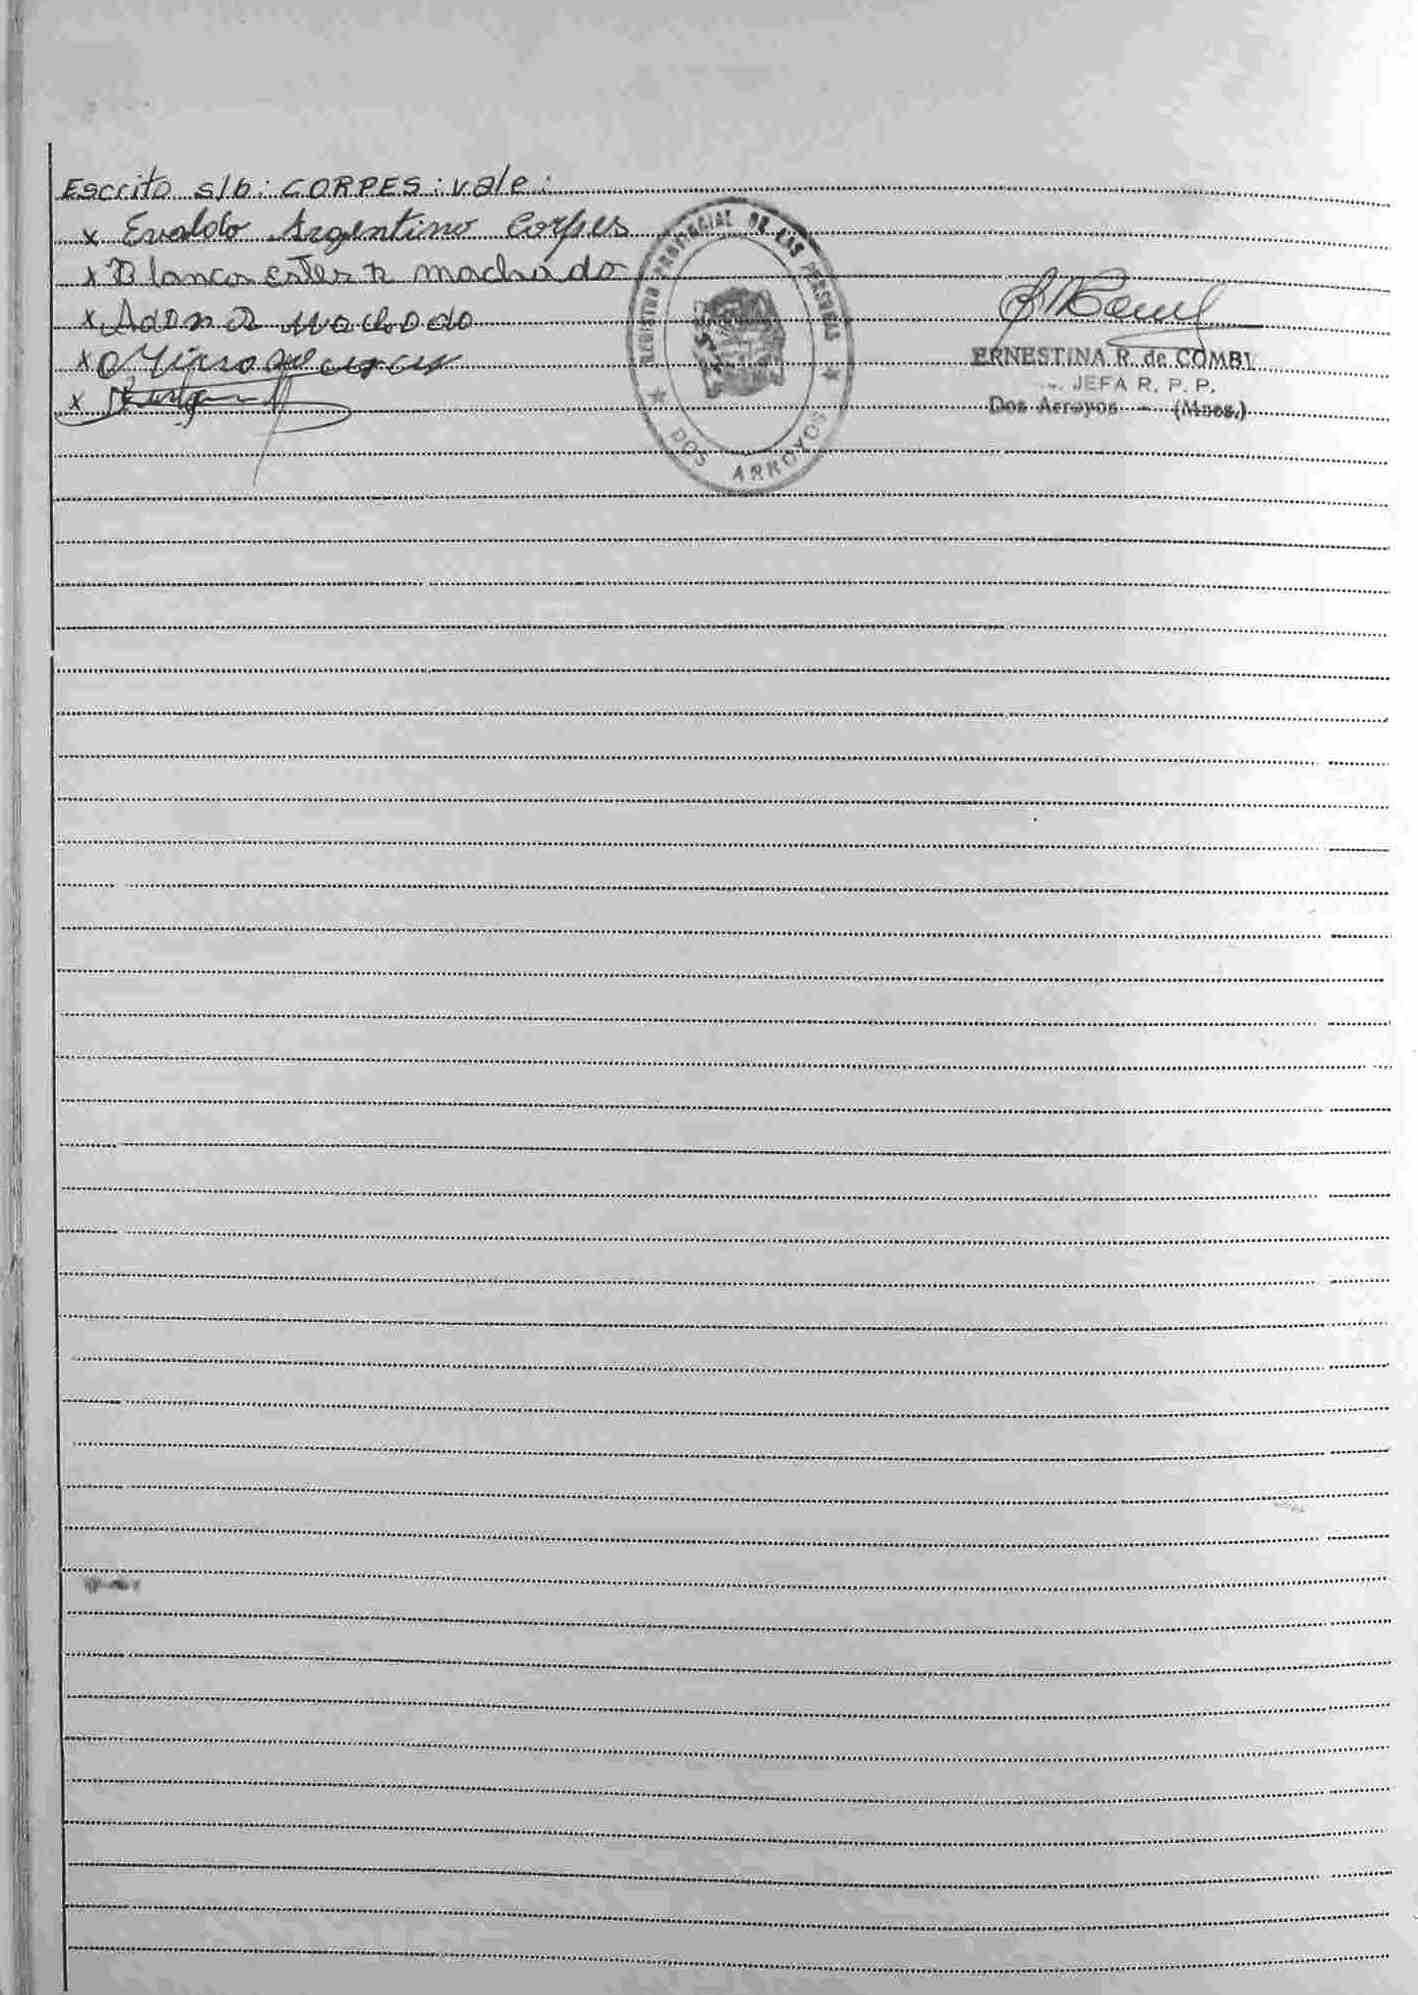 Escrito s/b: CORPES: vale:
x Evaldo Argentino Corpes
x Blanca ester R machado
x Adon R Machado
x
x
REGISTRO PROVINCIAL DE LAS PERSONAS
DOS ARROYOS
ERNESTINA R. de COMBI
JEFA R. P. P.
Dos Arroyos - (Mnes.)